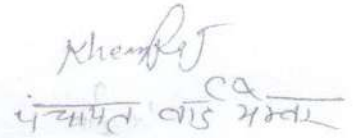 Khemraj
पंचायत वार्ड मेम्बर